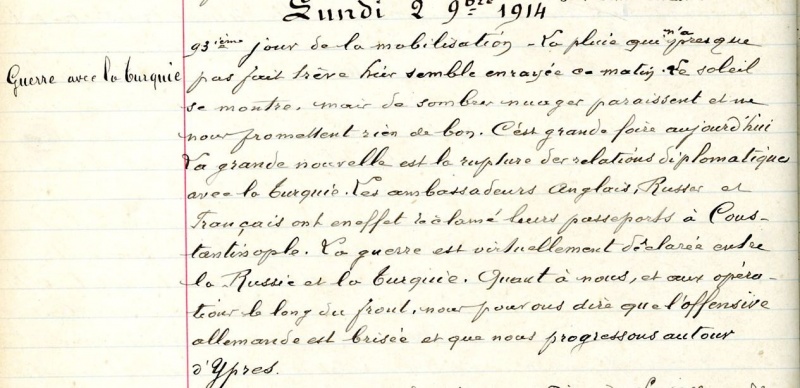 Lundi 2 9bre 1914
93ième jour de la mobilisation - La pluie qui n'a presque
Guerre avec la Turquie
pas fait trève hier semble enrayée ce matin. Le soleil
se montre, mais de sombres nuages paraissent et ne
nous promettent rien de bon. C'est grande foire aujourd'hui
La grande nouvelle est la rupture des relations diplomatiques
avec la Turquie. Les ambassadeurs Anglais, Russes et
Français ont en effet réclamé leurs passeports à Cons-
tantinople. La guerre est virtuellement déclarée entre
la Russie et la Turquie. Quant à nous, et aux opéra-
tions le long du front, nous pouvons dire que l'offensive
allemande est brisée et que nous progressons autour
d'Ypres.